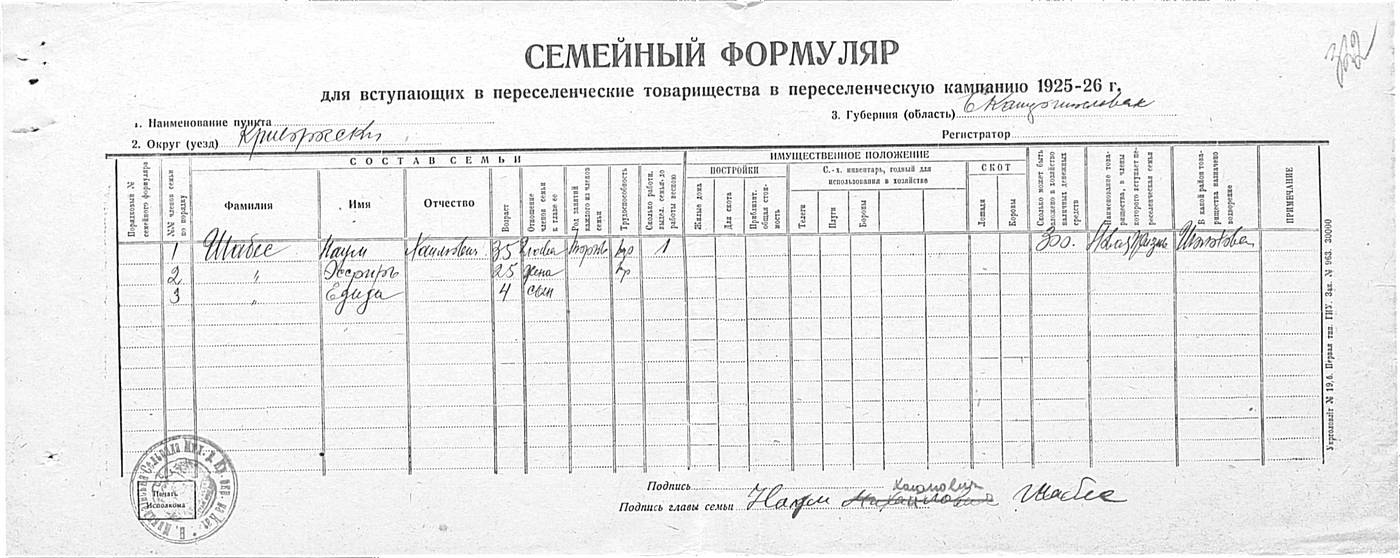 СЕМЕЙНЫЙ ФОРМУЛЯР
332
для вступающих в переселенческие товарищества в переселенческую кампанию 1925-26 г.
1. Наименование пункта
3. Губерния (область)
2. Округ (уезд) Криворожский
Регистратор
СОСТАВ СЕМЬИ
ИМУЩЕСТВЕННОЕ ПОЛОЖЕНИЕ
Порядковый № семейного формуляра
№№ членов семьи по порядку
Фамилия
Имя
Отчество
Возраст
Отношение членов семьи к главе ее
Род занятий каждого из членов семьи
Трудоспособность
Сколько работн. выдел. семья до работы весною
ПОСТРОЙКИ
Жилые дома
Для скота
Приблизит. общая стоимость
С.-х. инвентарь, годный для использования в хозяйстве
Телеги
Плуги
Бороны
СКОТ
Лошади
Коровы
Сколько может быть вложено в хозяйство наличных денежных средств
Наименование товарищества, в члены которого вступает переселенческая семья
В какой район товарищества назначено водворение
ПРИМЕЧАНИЕ
1 Шабес Наум Хаимович 35 глава 1 300.
2 " Эсфирь 25 жена
3 " 4 сын
Укрполиíг № 19,6. Первая тип. ГИУ. Зак. № 963. 30000
Печать Исполкома
Подпись
Хаимович
Подпись главы семьи Наум Михайлович Шабес